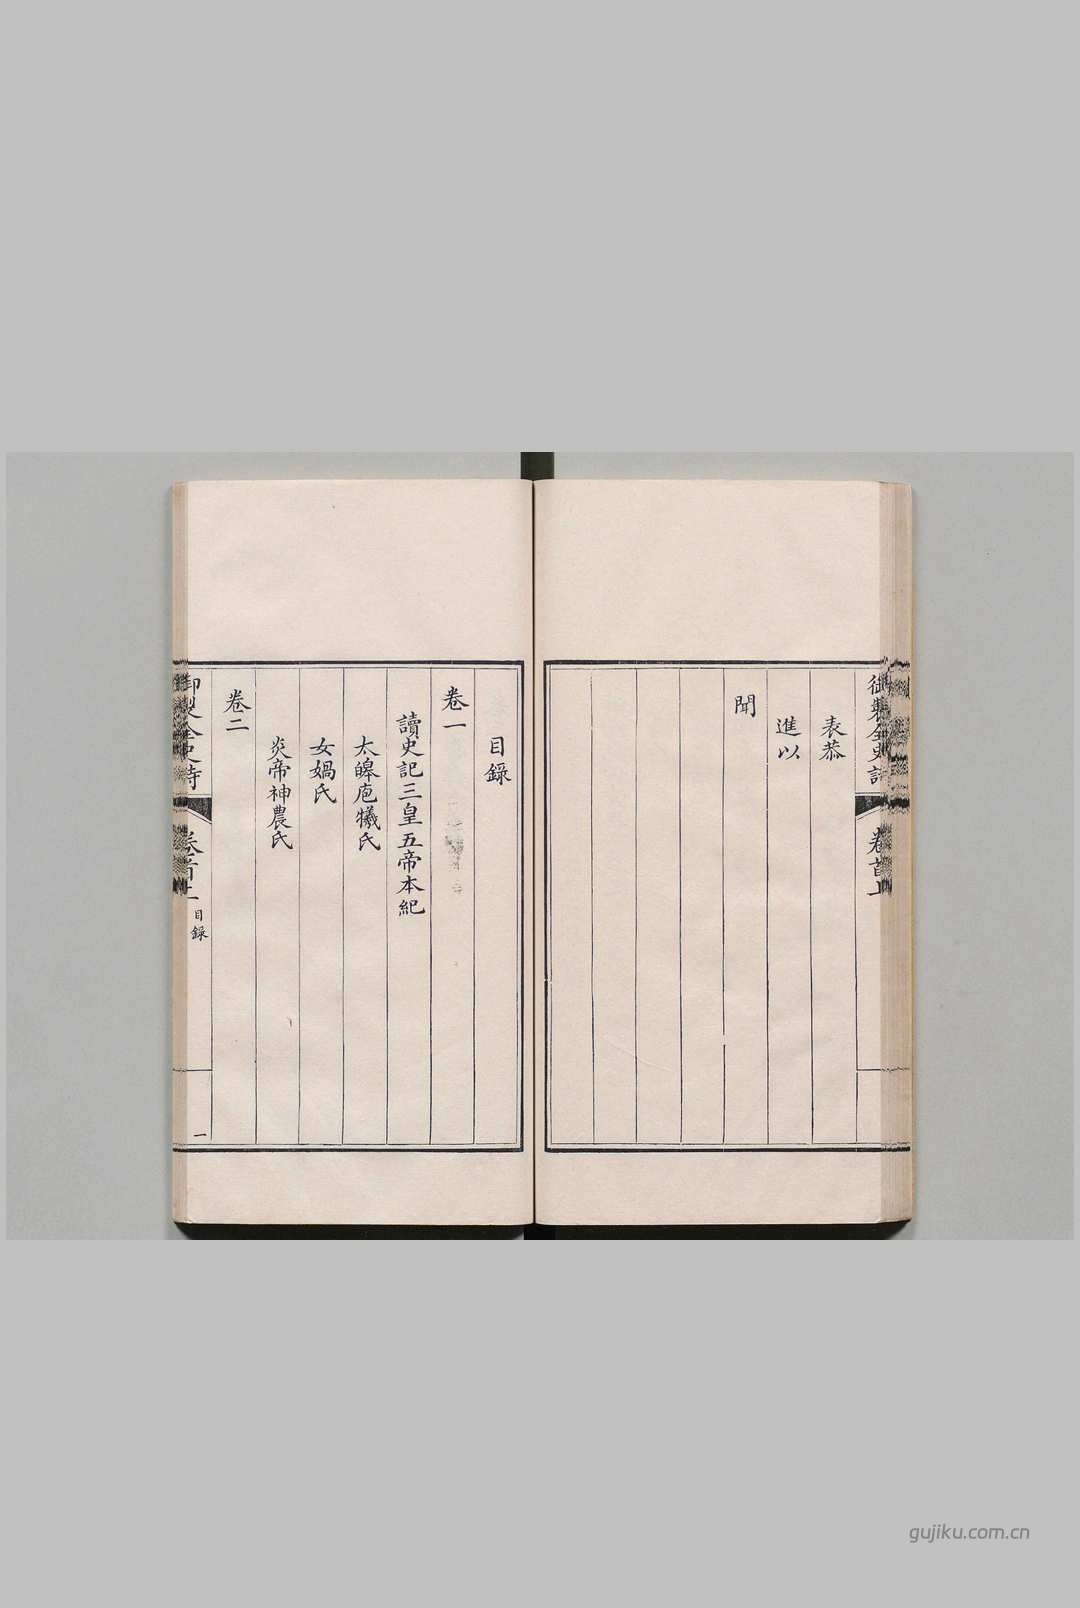 御製全史詩
卷首上
表恭
進以
聞
目錄
卷一
讀史記三皇五帝本紀
太皞庖犧氏
女媧氏
炎帝神農氏
卷二
御製全史詩
卷首上
目錄
一
gujiku.com.cn